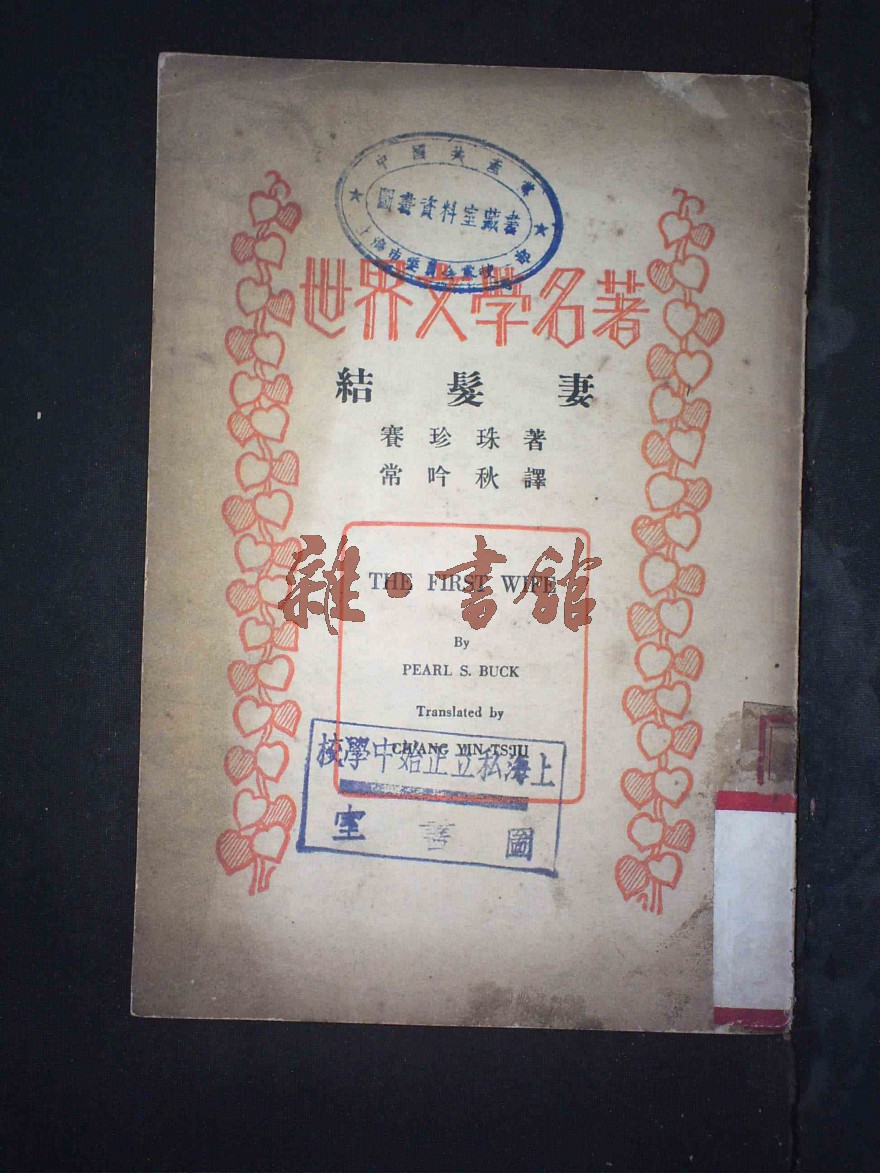 中國共產黨
圖書資料室藏書
世界文學名著
結髮妻
賽珍珠著
常吟秋譯
雜·書館
THE FIRST WIFE
By
PEARL S. BUCK
Translated by
CH'ANG YIN-TS'IU
上海私立正始中學校
圖書室